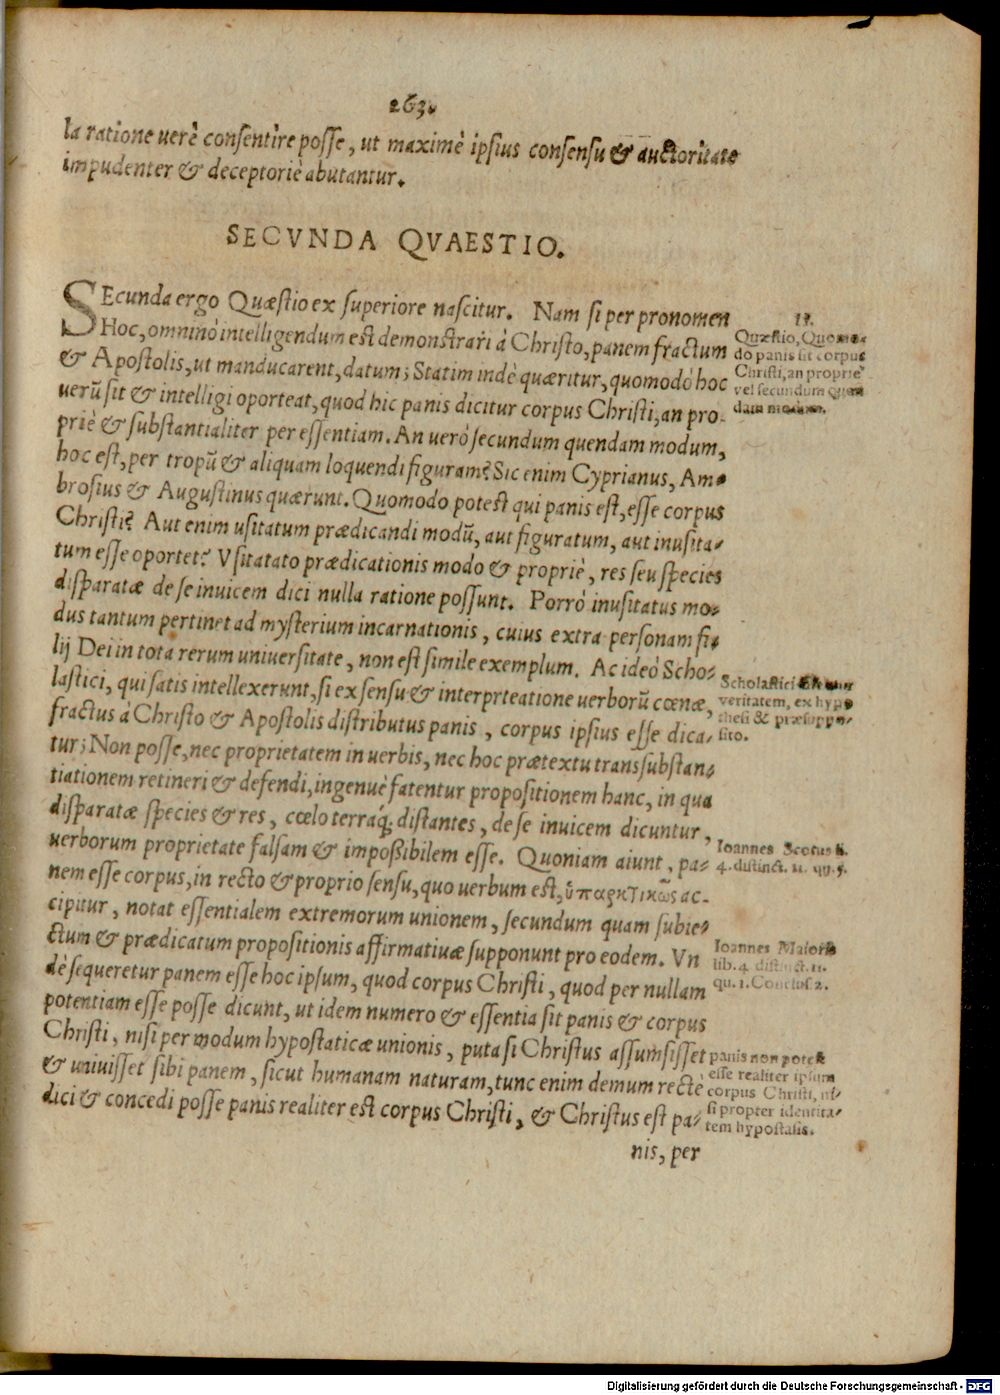 263.
la ratione uerè consentire posse, ut maximè ipsius consensu & auctoritate
impudenter & deceptoriè abutantur.
SECVNDA QVAESTIO.
SEcunda ergo Quæstio ex superiore nascitur. Nam si per pronomen
Hoc, omninò intelligendum est demonstrari à Christo, panem fractum
& Apostolis, ut manducarent, datum; Statim indè quæritur, quomodò hoc
uerū sit & intelligi oporteat, quod hic panis dicitur corpus Christi, an pro-
priè & substantialiter per essentiam. An uerò secundum quendam modum,
hoc est, per tropū & aliquam loquendi figuram? Sic enim Cyprianus, Am-
brosius & Augustinus quærunt. Quomodo potest qui panis est, esse corpus
Christi? Aut enim usitatum prædicandi modū, aut figuratum, aut inusita-
tum esse oportet? Vsitatato prædicationis modo & propriè, res seu species
disparatæ de se inuicem dici nulla ratione possunt. Porrò inusitatus mo-
dus tantum pertinet ad mysterium incarnationis, cuius extra personam fi-
lij Dei in tota rerum uniuersitate, non est simile exemplum. Ac ideò Scho-
lastici, qui satis intellexerunt, si ex sensu & interprteatione uerborū cœnæ,
fractus à Christo & Apostolis distributus panis, corpus ipsius esse dica-
tur; Non posse, nec proprietatem in uerbis, nec hoc prætextu transsubstan-
tiationem retineri & defendi, ingenuè fatentur propositionem hanc, in qua
disparatæ species & res, cœlo terraq; distantes, de se inuicem dicuntur,
uerborum proprietate falsam & impoßibilem esse. Quoniam aiunt, pa-
nem esse corpus, in recto & proprio sensu, quo uerbum est, ὑπαρκτικῶς ac-
cipitur, notat essentialem extremorum unionem, secundum quam subie-
ctum & prædicatum propositionis affirmatiuæ supponunt pro eodem. Vn
dè sequeretur panem esse hoc ipsum, quod corpus Christi, quod per nullam
potentiam esse posse dicunt, ut idem numero & essentia sit panis & corpus
Christi, nisi per modum hypostaticæ unionis, puta si Christus assumsisset
& uniuisset sibi panem, sicut humanam naturam, tunc enim demum recte
dici & concedi posse panis realiter est corpus Christi, & Christus est pa-
nis, per
17.
Quæstio, Quomo
do panis sit corpus
Christi, an propriè
vel secundum quen
dam modum.
Scholastici
veritatem, ex hypo
thesi & præsuppo-
sito.
Ioannes Scotus li.
4. distinct. 11. qu. 3.
Ioannes Maioris
lib. 4. distinct. 11.
qu. 1. Conclus 2.
panis non potest
esse realiter ipsum
corpus Christi, ni-
si propter identita-
tem hypostasis.
Digitalisierung gefördert durch die Deutsche Forschungsgemeinschaft - DFG